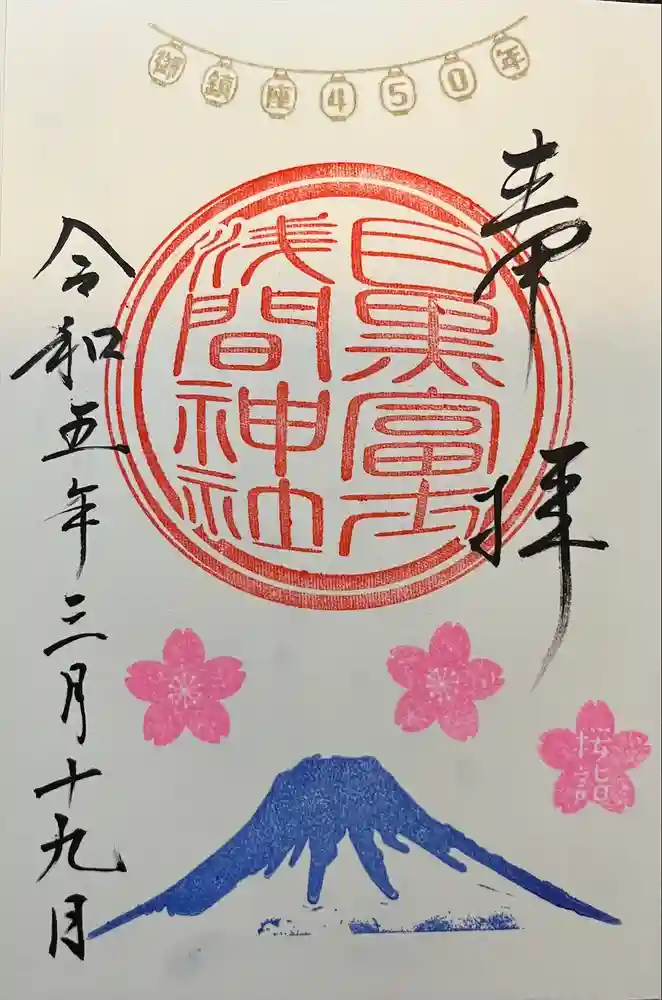 御鎮座450年
奉拝
目黒富士
浅間神社
令和五年三月十九日
桜詣